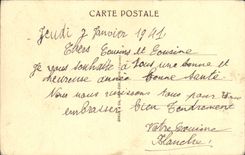 CARTE POSTALE
Jeudi 2 Janvier 1941
Chers Cousins et Cousine
Je vous souhaite à tous une bonne et
heureuse année bonne santé
Nous nous réunissons tous pour vous
embrasser bien tendrement
Votre cousine
Blanche